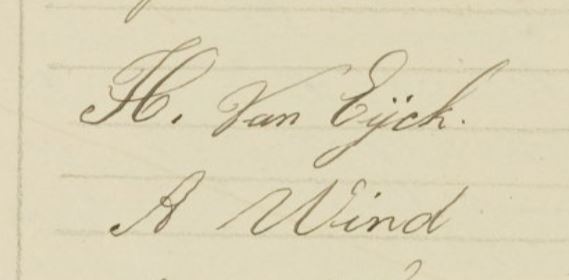 H. Van Eÿck.
A Wind